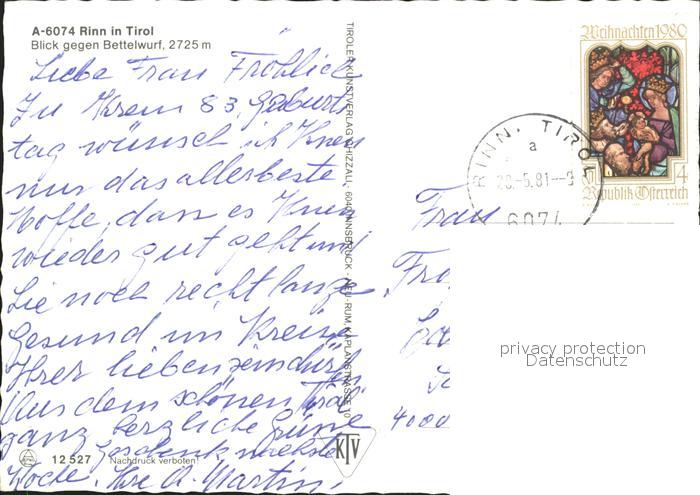 A-6074 Rinn in Tirol
Blick gegen Bettelwurf, 2725 m
Liebe Frau Fröhlich
Zu Ihrem 83. Geburts
tag wünsch ich Ihnen
nur das allerbeste
Hoffe, dass es Ihnen
wieder gut geht und
Sie noch recht lange
Gesund im Kreise
Ihrer lieben sein dürfen
Aus dem schönen Tirol
ganz herzliche Grüsse
Geschenk nächste
Woche. Ihre A. Martin
12 527 Nachdruck verboten
TIROLER KUNSTVERLAG CHIZZALI, 6040 INNSBRUCK - NEU-RUM, KAPLANSTRASSE 10
KTV
Weihnachten 1980
S 4
Republik Österreich
RINN, TIROL
a
28.-5.81--9
6074
Frau
Frö
4000
privacy protection
Datenschutz